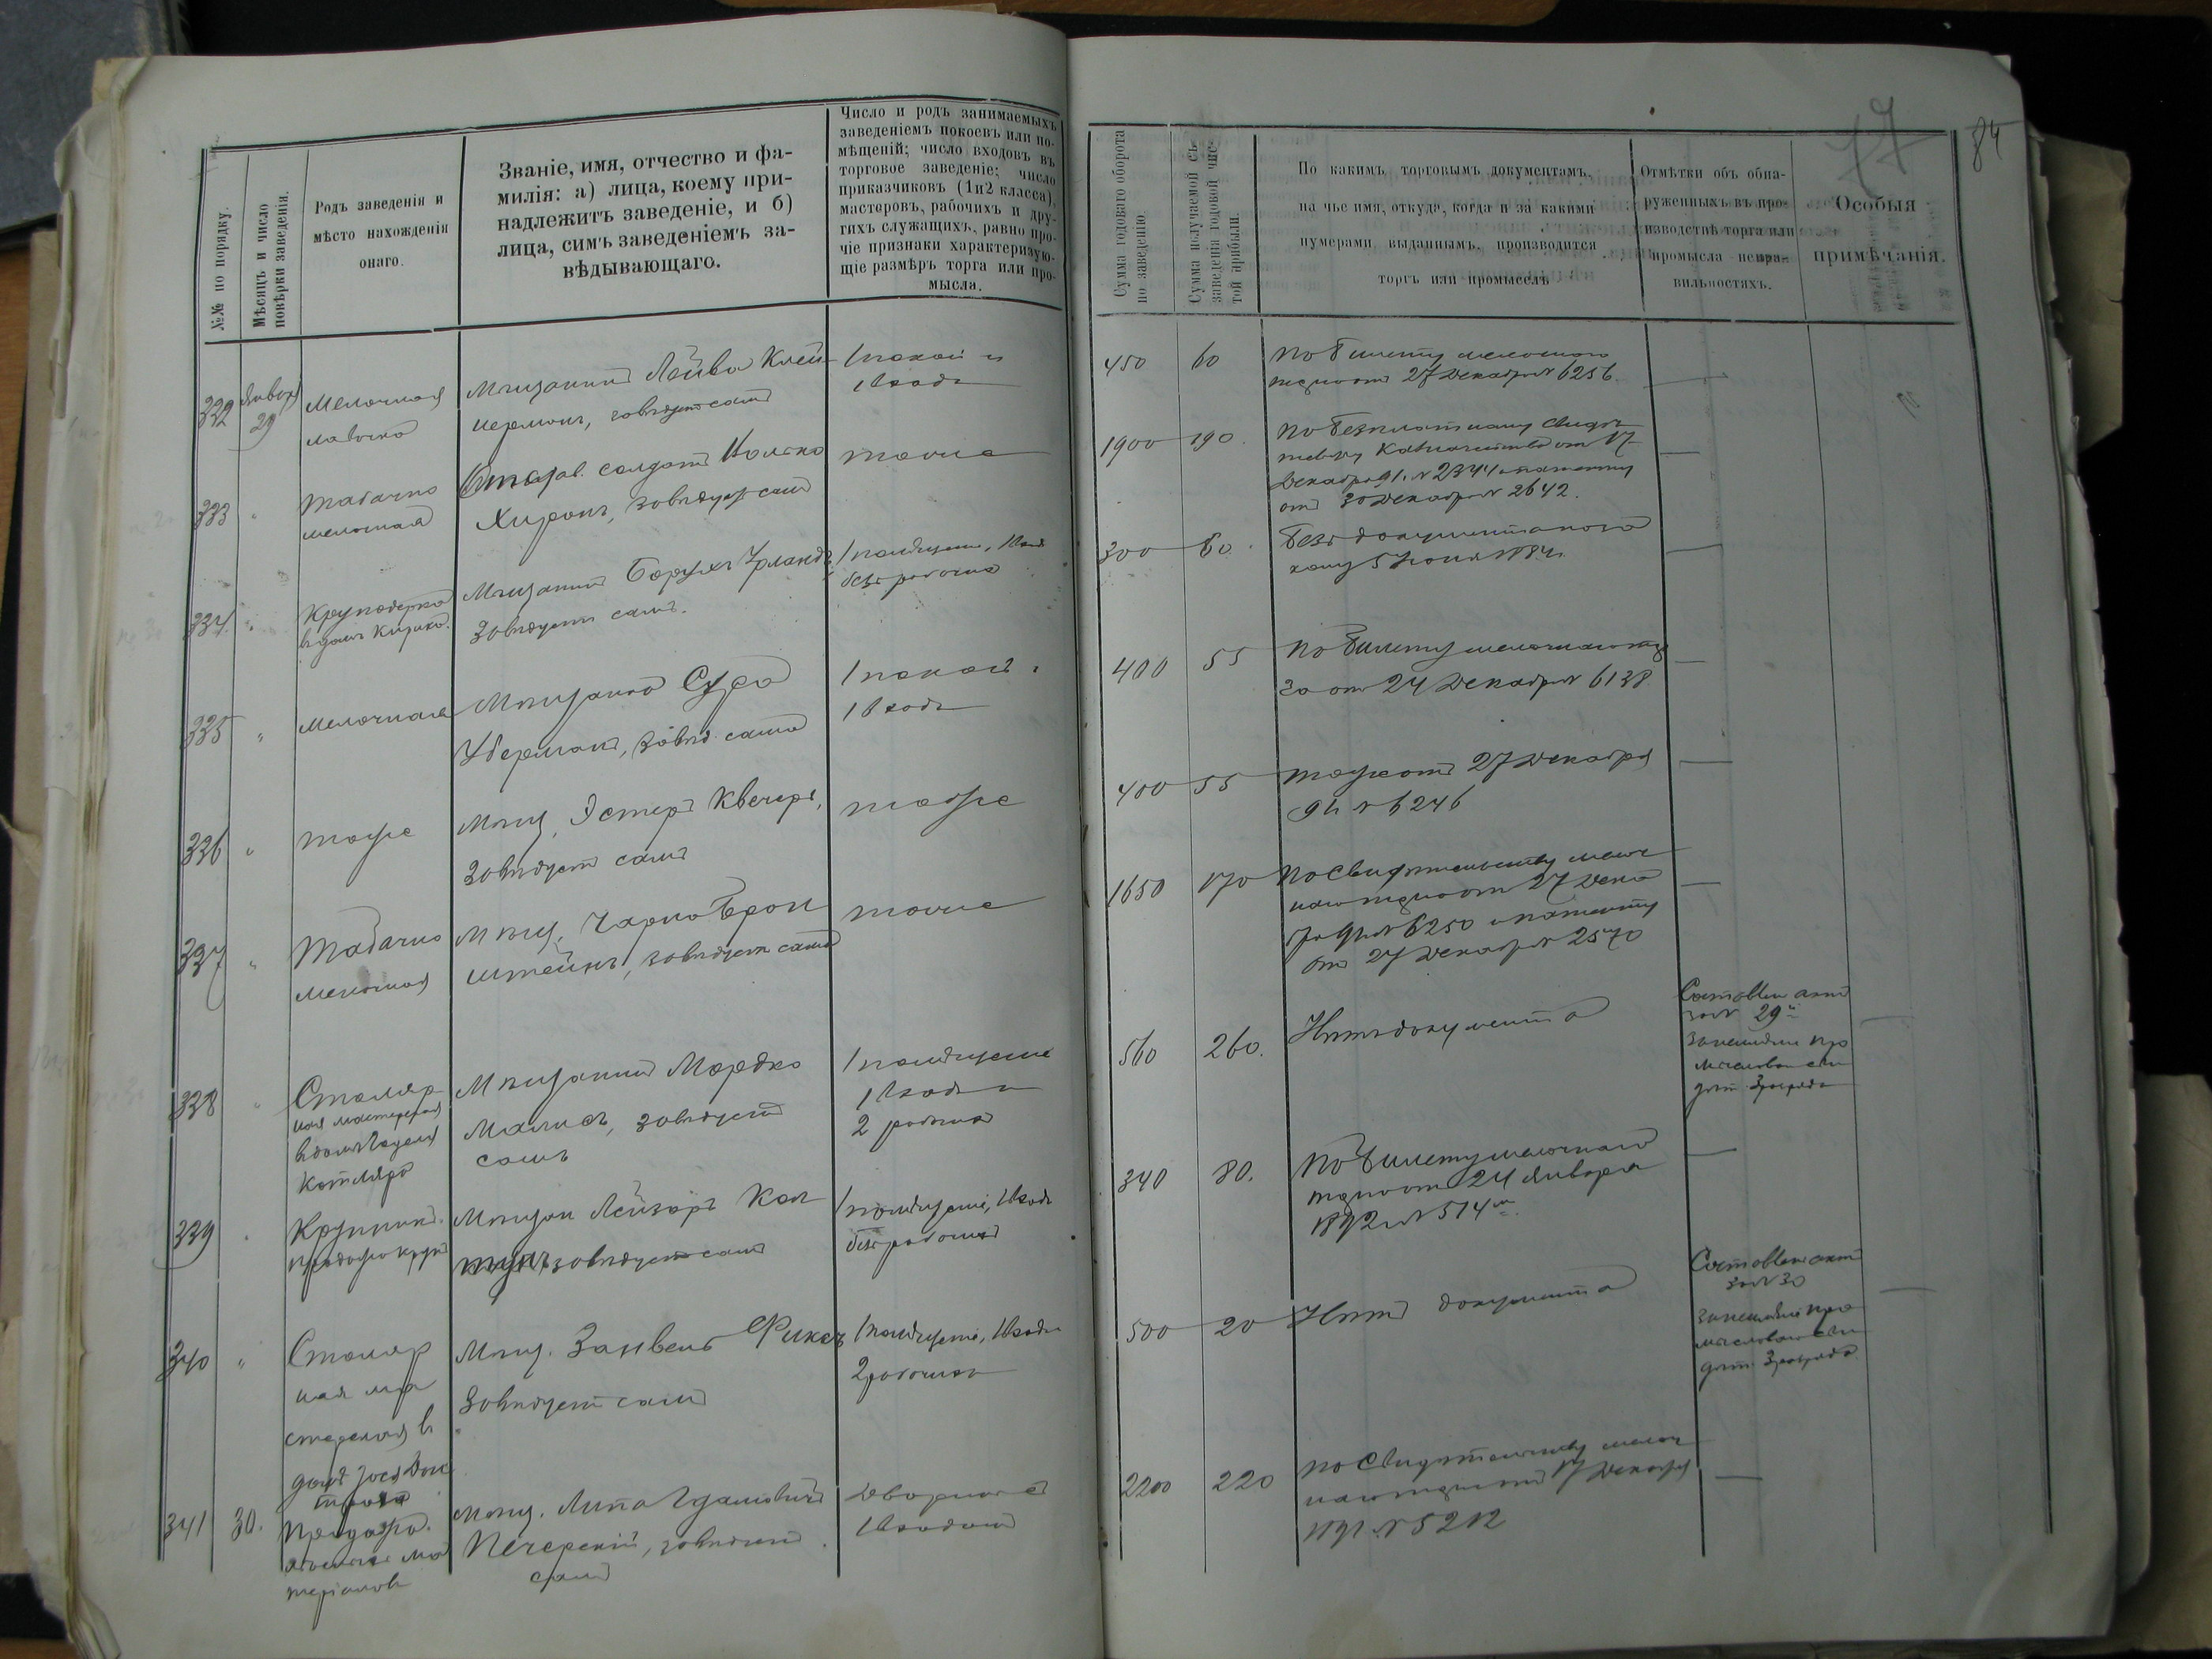 84
№№ по порядку.
Мѣсяцъ и число
повѣрки заведенія.
Родъ заведенія и
мѣсто нахожденія
онаго.
Званіе, имя, отчество и фа-
милія: а) лица, коему при-
надлежитъ заведеніе, и б)
лица, симъ заведеніемъ за-
вѣдывающаго.
Число и родъ занимаемыхъ
заведеніемъ покоевъ или по-
мѣщеній; число входовъ въ
торговое заведеніе; число
приказчиковъ (1 и 2 класса),
мастеровъ, рабочихъ и дру-
гихъ служащихъ, равно про-
чіе признаки характеризую-
щіе размѣръ торга или про-
мысла.
Сумма годоваго оборота
по заведенію.
Сумма получаемой съ
заведенія годовой чис-
той прибыли.
По какимъ торговымъ документамъ,
на чье имя, откуда, когда и за какими
нумерами выданнымъ, производится
торгъ или промыселъ
Отмѣтки объ обна-
руженныхъ въ про-
изводствѣ торга или
промысла непра-
вильностяхъ.
Особыя
примѣчанія.
332
Января
29
Мелочная
лавочка
Мѣщанинъ Лейба Клей-
нерманъ, завѣдуетъ самъ
1 покой и
1 входъ
450
60
По билету мелочного
торга отъ 27 Декабря № 6256
333
Табачно
мелочная
Отстав. солдатъ
завѣдуетъ самъ
тоже
1900
190
По безплатному свидѣ-
тельству Казначейства отъ 17
Декабря 91 г. № 2344 и патенту
отъ 30 Декабря № 2642.
334
Круподерка
въ домѣ
Мѣщанинъ Борухъ
завѣдуетъ самъ.
1 помѣщеніе, 1 входъ
безъ рабочихъ
300
60
Безъ документа по
зако
335
Мелочная
Мѣщанка Сура
Уберманъ, завѣд. сама
1 покой и
1 входъ
400
55
По билету мелочнаго тор
га отъ 24 Декабря № 6138
336
тоже
Мѣщ. Эстеръ Квечеръ,
завѣдуетъ самъ
тоже
400
55
тоже отъ 27 Декабря
91 г. № 6246
337
Табачно
мелочная
Мѣщ. Чарна Брон
штейнъ, завѣдуетъ сама
тоже
1650
170
По свидѣтельству мелоч
наго торга отъ 27 Дека
бря 91 г. № 6250 и патенту
отъ 27 Декабря № 2570
338
Столяр
ная мастерская
въ домѣ
Котляра
Мѣщанинъ Мордко
завѣдуетъ
самъ
1 помѣщеніе
1 входъ и
2 рабочихъ
560
260.
Нѣтъ документа
Составленъ актъ
за № 29
за неимѣніе про
мысловаго сви
дѣт. 3 разряда
339
Мѣщан. Лейзоръ
завѣдуетъ самъ
1 помѣщеніе, 1 входъ
безъ рабочихъ
340
80.
По билету мелочнаго
торга отъ 24 Января
1892 г. № 514
340
Столяр
ная ма
стерская въ
домѣ
Мѣщ. Занвель Фиксъ
завѣдуетъ самъ
1 помѣщеніе, 1 входъ
2 рабочихъ
500
20
Нѣтъ документа
Составленъ актъ
за № 30
за неимѣніе про
мысловаго сви
дѣт. 3 разряда
341
30.
Продажа
ма
теріаловъ
Мѣщ. Липа
Печерскій, завѣдуетъ
самъ
1 входомъ
2200
220
По свидѣтельству мелоч
наго торга отъ 17 Декабря
1891 г. № 5212